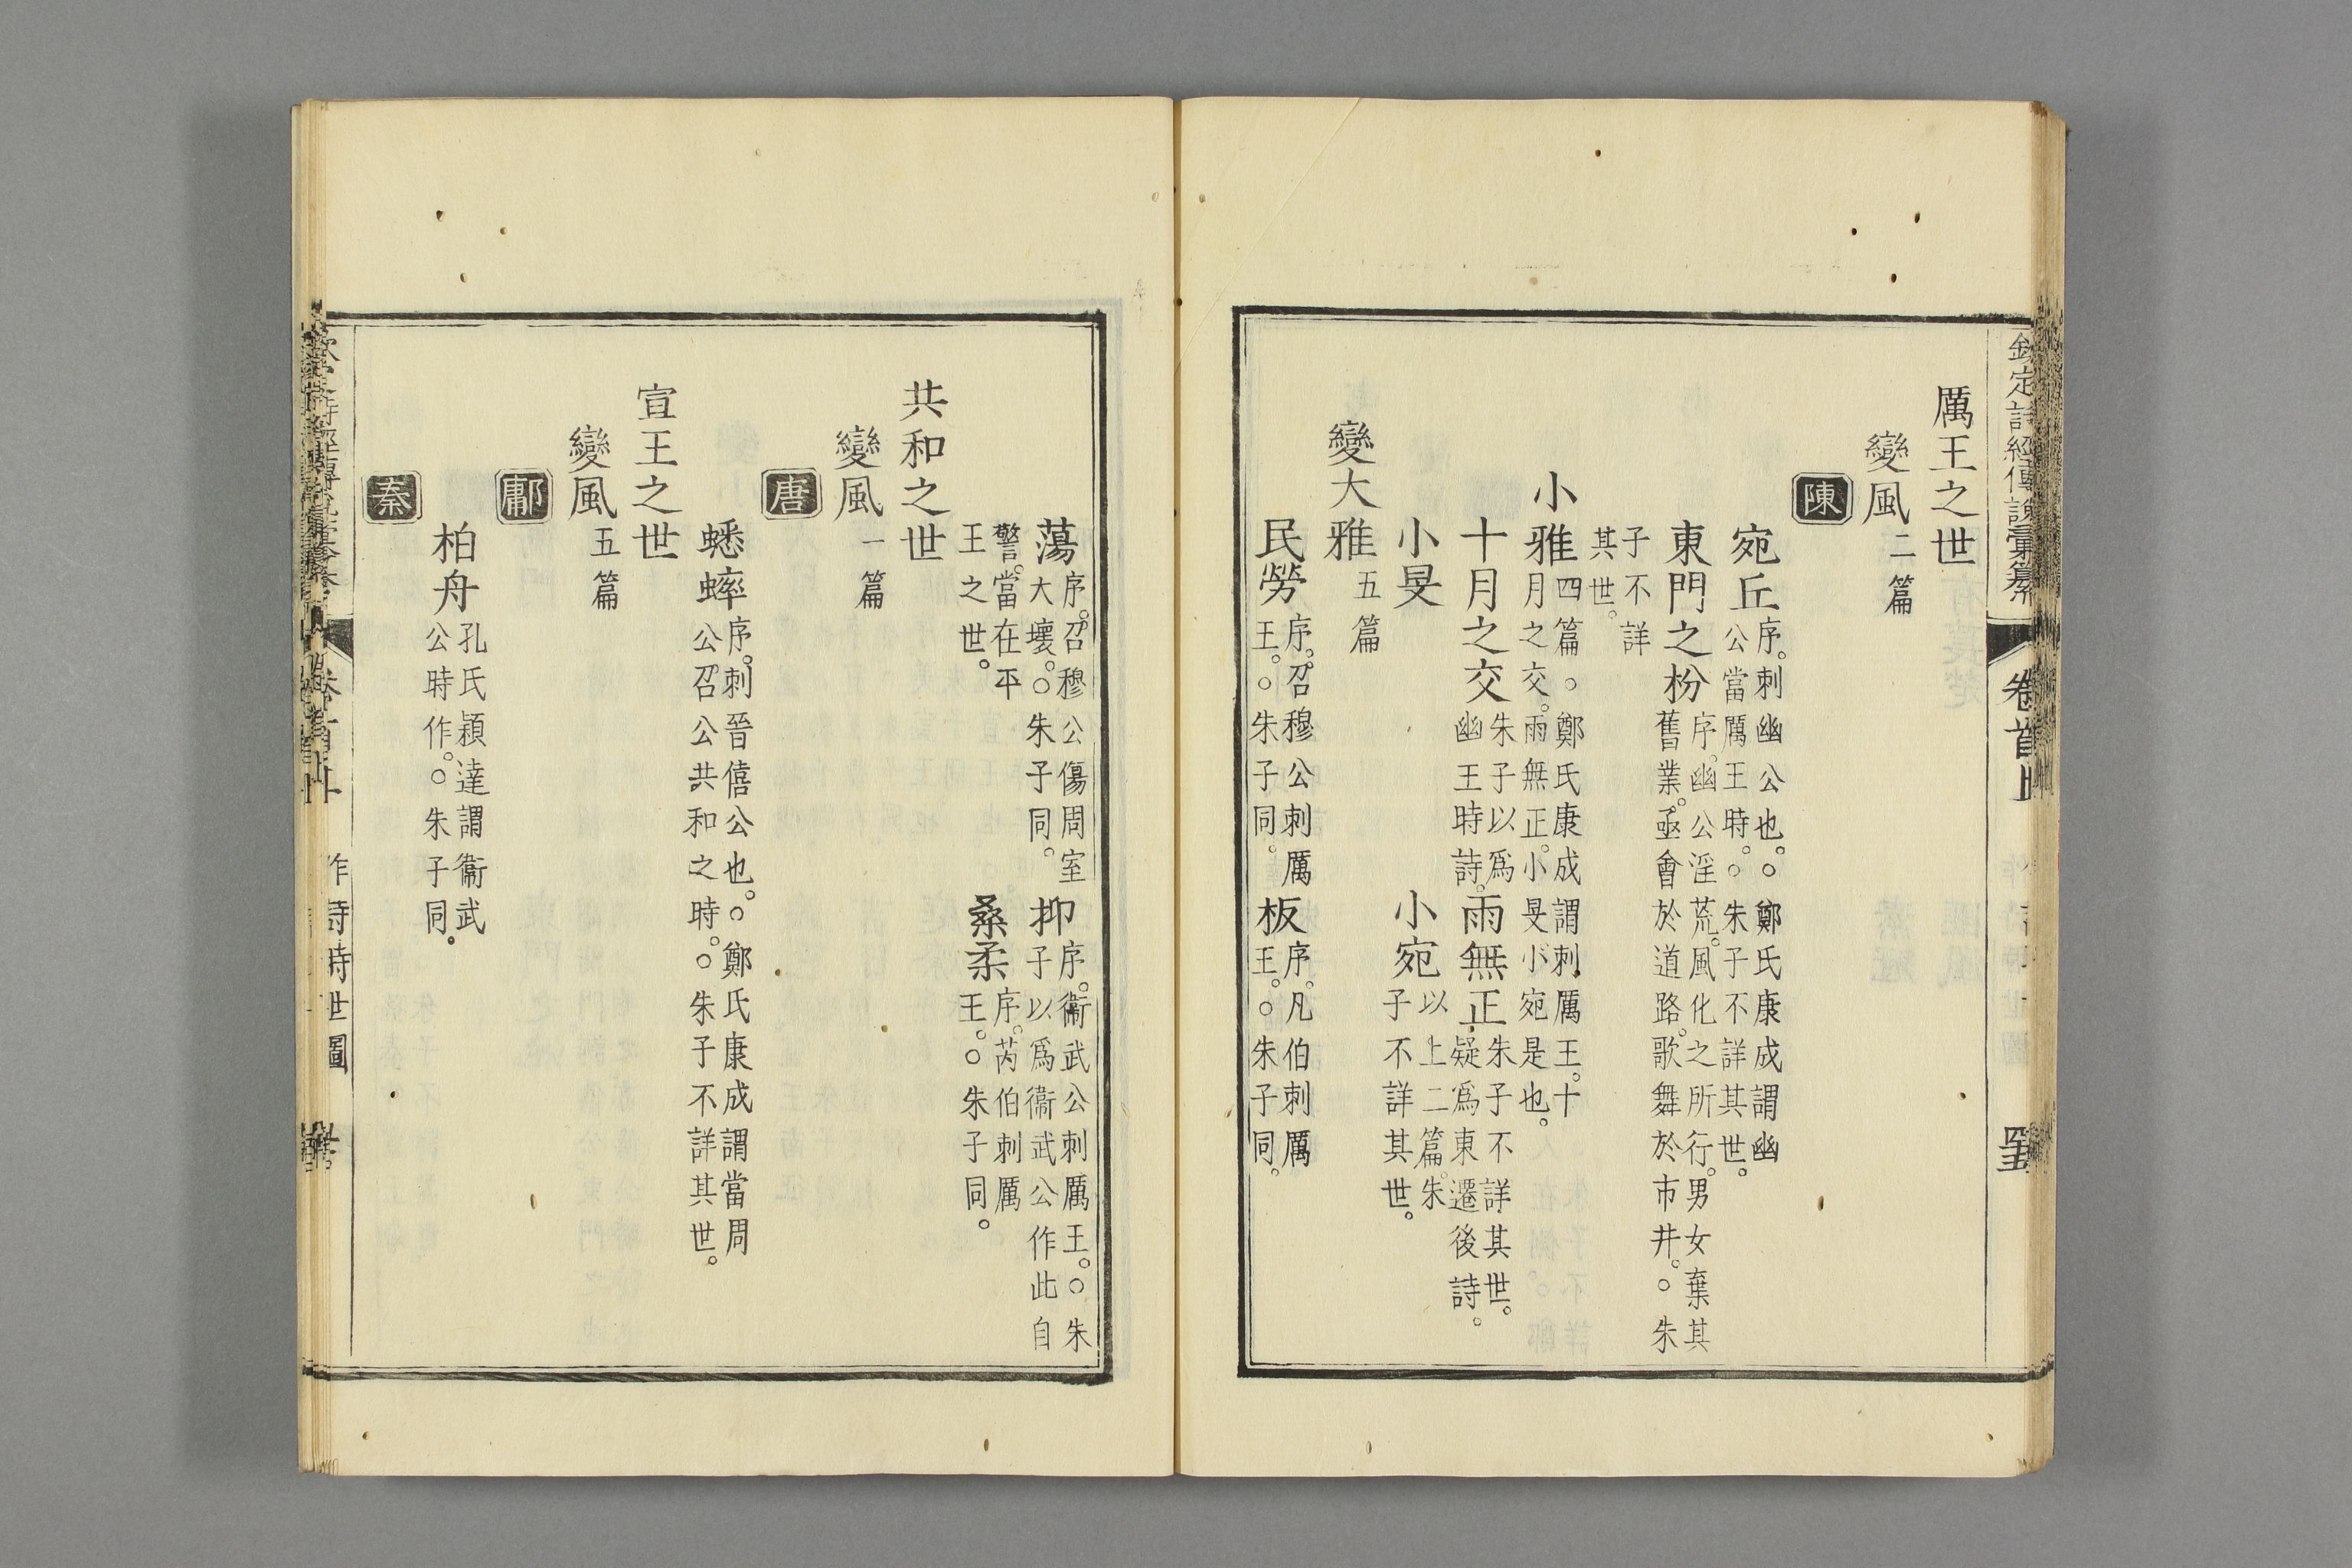 欽定詩經傳說彙纂 卷首
厲王之世
變風二篇
陳
宛丘序。刺幽公也。○鄭氏康成謂幽
公當厲王時。○朱子不詳其世。
東門之枌序。幽公淫荒。風化之所行。男女棄其
舊業。亟會於道路。歌舞於市井。○朱
子不詳
其世。
小雅四篇。○鄭氏康成謂刺厲王。十
月之交。雨無正。小旻。小宛是也。
十月之交朱子以爲
幽王時詩。
雨無正朱子不詳其世。
疑爲東遷後詩。
小旻
小宛以上二篇。朱
子不詳其世。
變大雅五篇
民勞序。召穆公刺厲
王。○朱子同。
板序。凡伯刺厲
王。○朱子同。
蕩序。召穆公傷周室
大壞。○朱子同。
抑序。衞武公刺厲王。○朱
子以爲衞武公作此自
警。當在平
王之世。
桑柔序。芮伯刺厲
王。○朱子同。
共和之世
變風一篇
唐
蟋蟀序。刺晉僖公也。○鄭氏康成謂當周
公召公共和之時。○朱子不詳其世。
宣王之世
變風五篇
鄘
柏舟孔氏穎達謂衞武
公時作。○朱子同。
秦
作詩時世圖